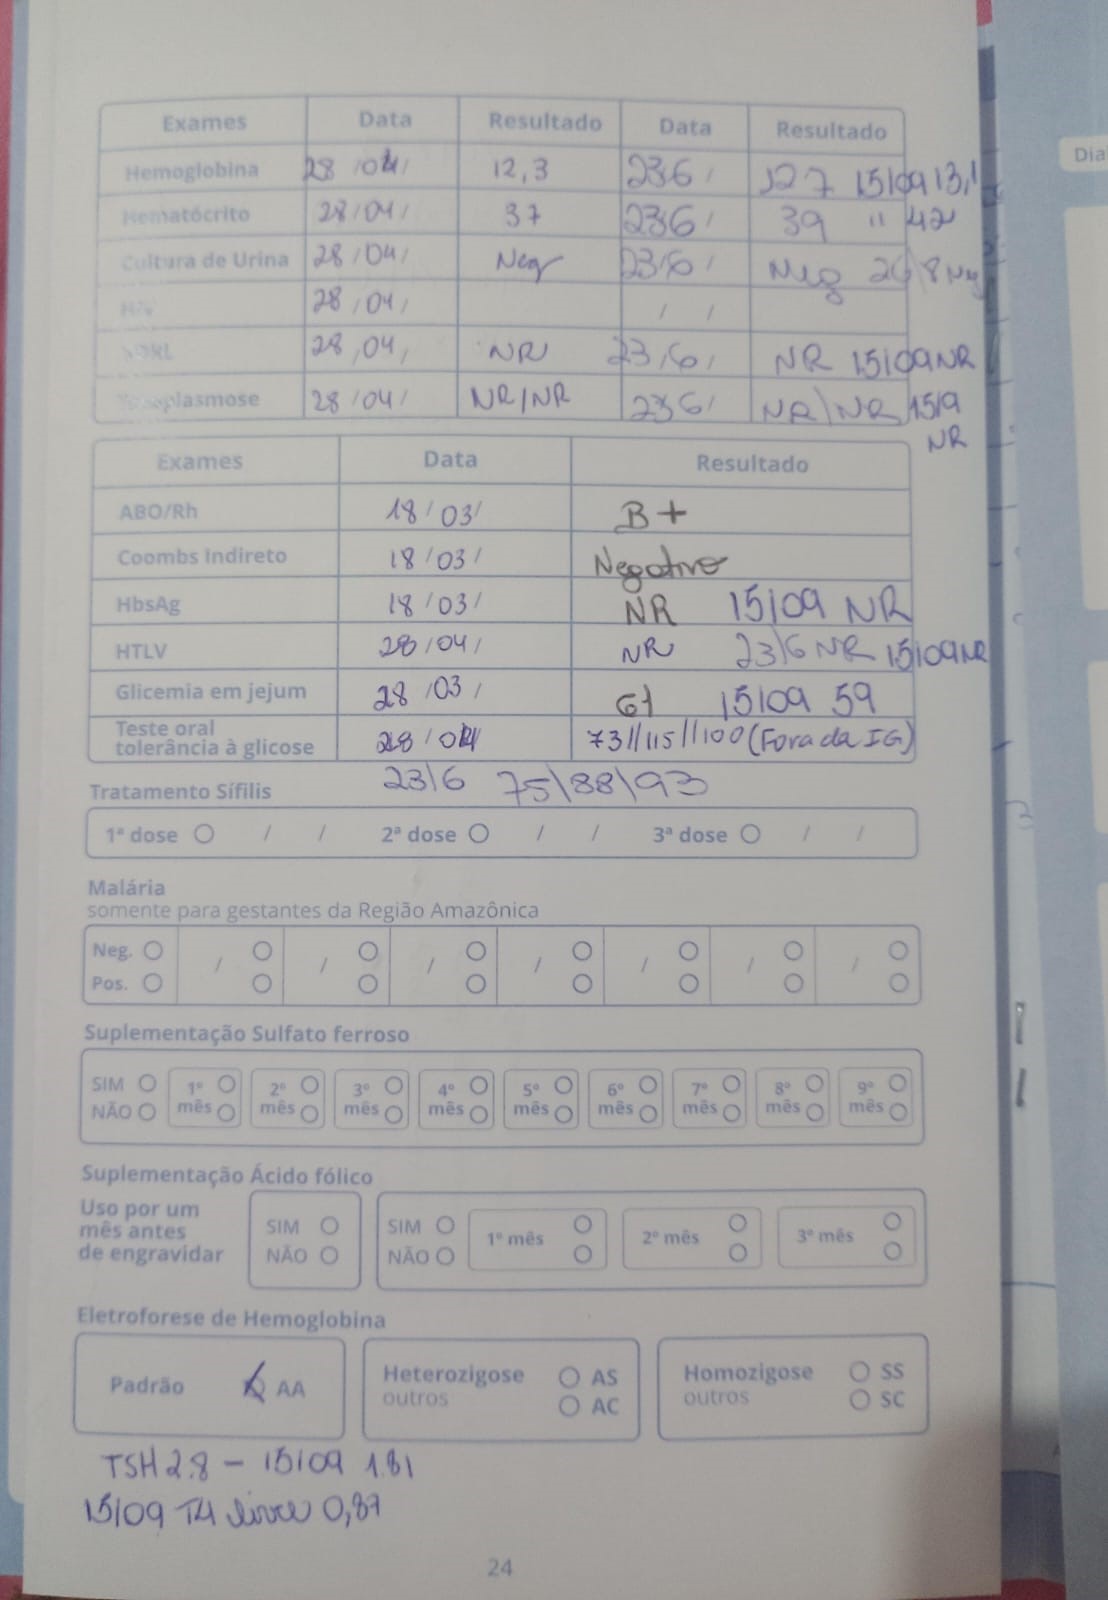 Dia
Exames Data Resultado Data Resultado
Hemoglobina 28/04/ 12,3 23/6/ 127 15/09 13,1
Hematócrito 28/04/ 37 23/6/ 39 " 42
Cultura de Urina 28/04/ Neg 23/6/ Neg 26/8 Neg
28/04/ / /
VDRL 28/04/ NR 23/6/ NR 15/09 NR
Toxoplasmose 28/04/ NR/NR 23/6/ NR/NR 15/9
NR
Exames Data Resultado
ABO/Rh 18/03/ B+
Coombs Indireto 18/03/ Negativo
HbsAg 18/03/ NR 15/09 NR
HTLV 28/04/ NR 23/6 NR 15/09 NR
Glicemia em jejum 28/03/ 61 15/09 59
Teste oral
tolerância à glicose 28/04/ 73//115//100 (Fora da IG)
23/6 75/88/93
Tratamento Sífilis
1ª dose / / 2ª dose / / 3ª dose / /
Malária
somente para gestantes da Região Amazônica
Neg. / / / / / / /
Pos.
Suplementação Sulfato ferroso
SIM 1º 2º 3º 4º 5º 6º 7º 8º 9º
NÃO mês mês mês mês mês mês mês mês mês
Suplementação Ácido fólico
Uso por um
mês antes
de engravidar
SIM
NÃO
SIM
NÃO
1º mês 2º mês 3º mês
Eletroforese de Hemoglobina
Padrão AA
Heterozigose AS
outros AC
Homozigose SS
outros SC
TSH 2.8 - 15/09 1.81
15/09 T4 livre 0,87
24